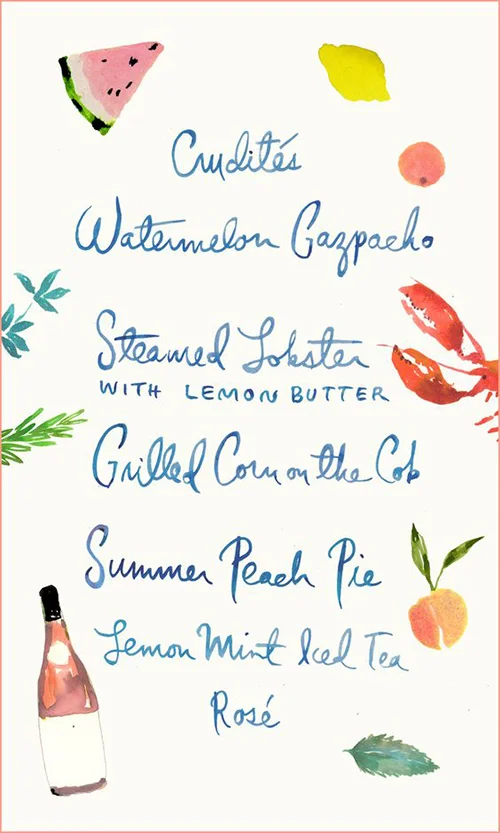 Crudités
Watermelon Gazpacho
Steamed Lobster
WITH LEMON BUTTER
Grilled Corn on the Cob
Summer Peach Pie
Lemon Mint Iced Tea
Rosé